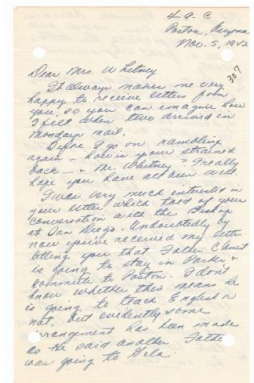 4 A. C
Poston, Arizona
Nov. 5, 1942
307
Dear Mrs. Whitney
It always makes me very
happy to receive letters from
you, so you can imagine how
I felt when two arrived in
Monday's mail.
Before I go on rambling
again - how is your strained
back - & Mr. Whitney? I really
hope you have all been well.
I was very much interested in
your letter which told of your
conversation with the Bishop
at San Diego. Undoubtedly by
now you've received my letter
telling you that Father Clement
is going to stay in Parker &
commute to Poston. I don't
know whether this means he
is going to teach English or
not. But evidently some
arrangement has been made
as he said another Father
was going to Gila.